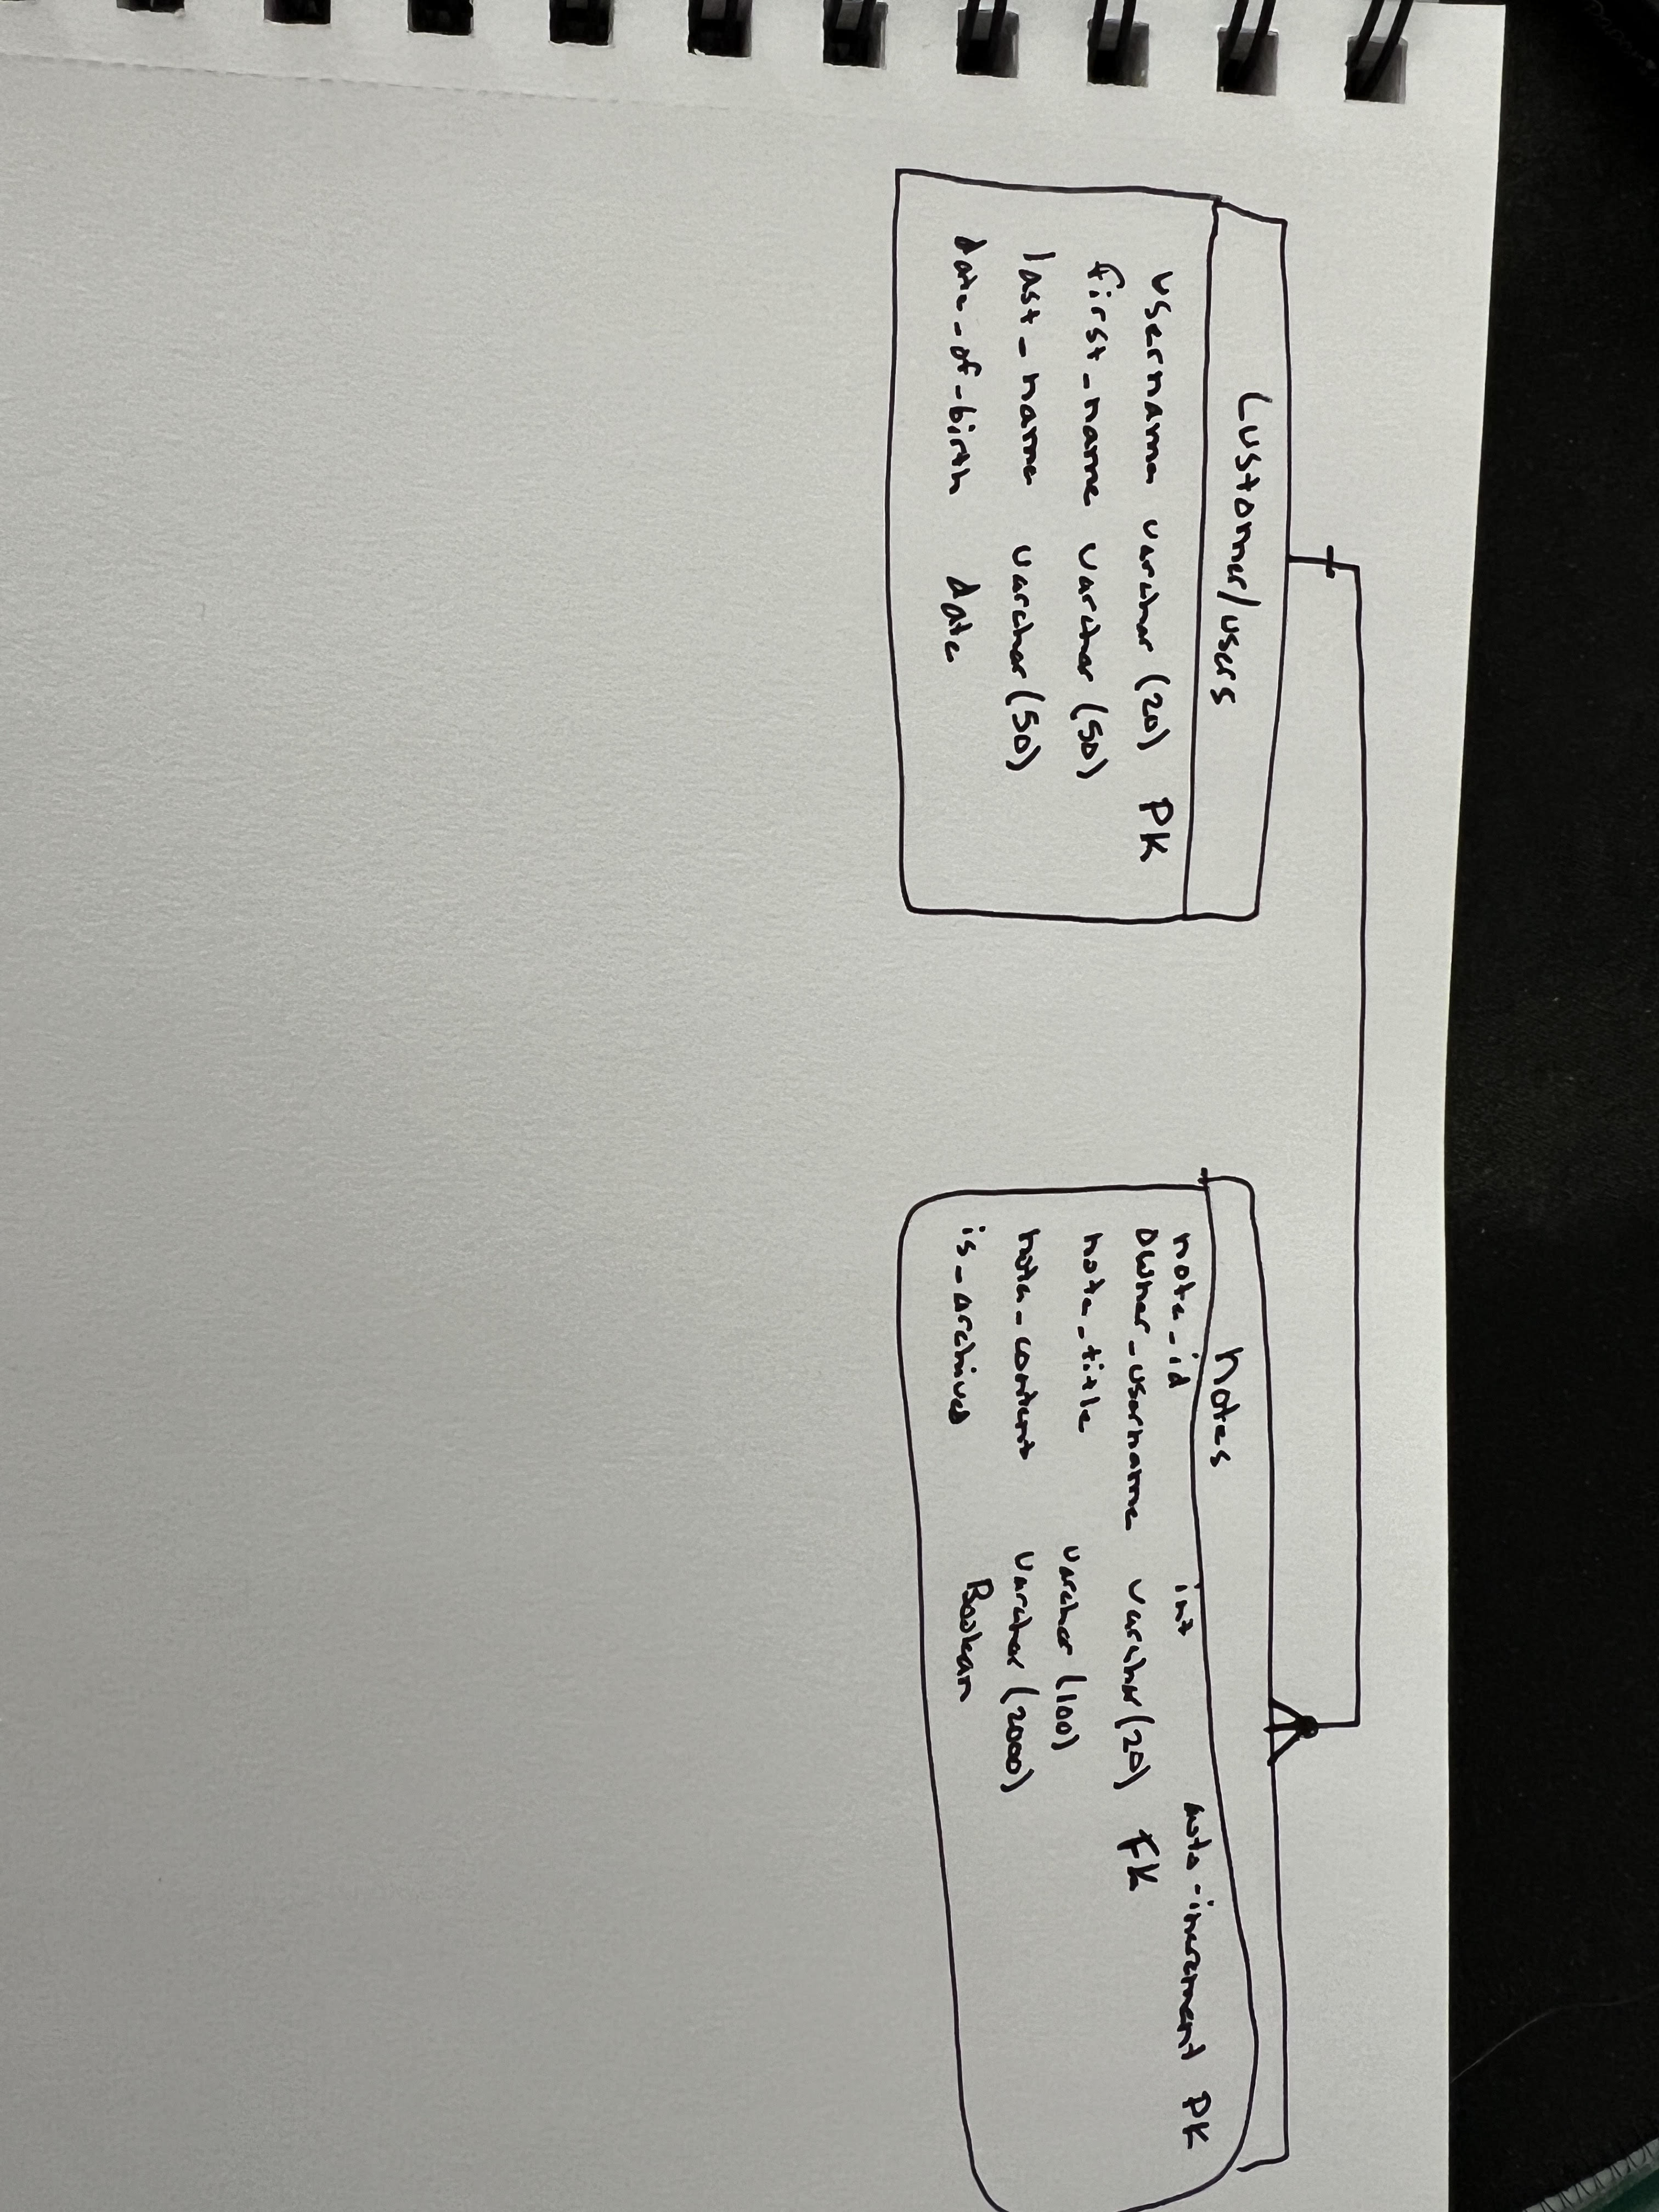 Customer/users
username varchar (20) PK
first_name varchar (50)
last_name varchar (50)
date_of_birth date
notes
note_id int auto-increment PK
owner_username varchar (20) FK
note_title varchar (100)
note_content varchar (2000)
is_archived Boolean